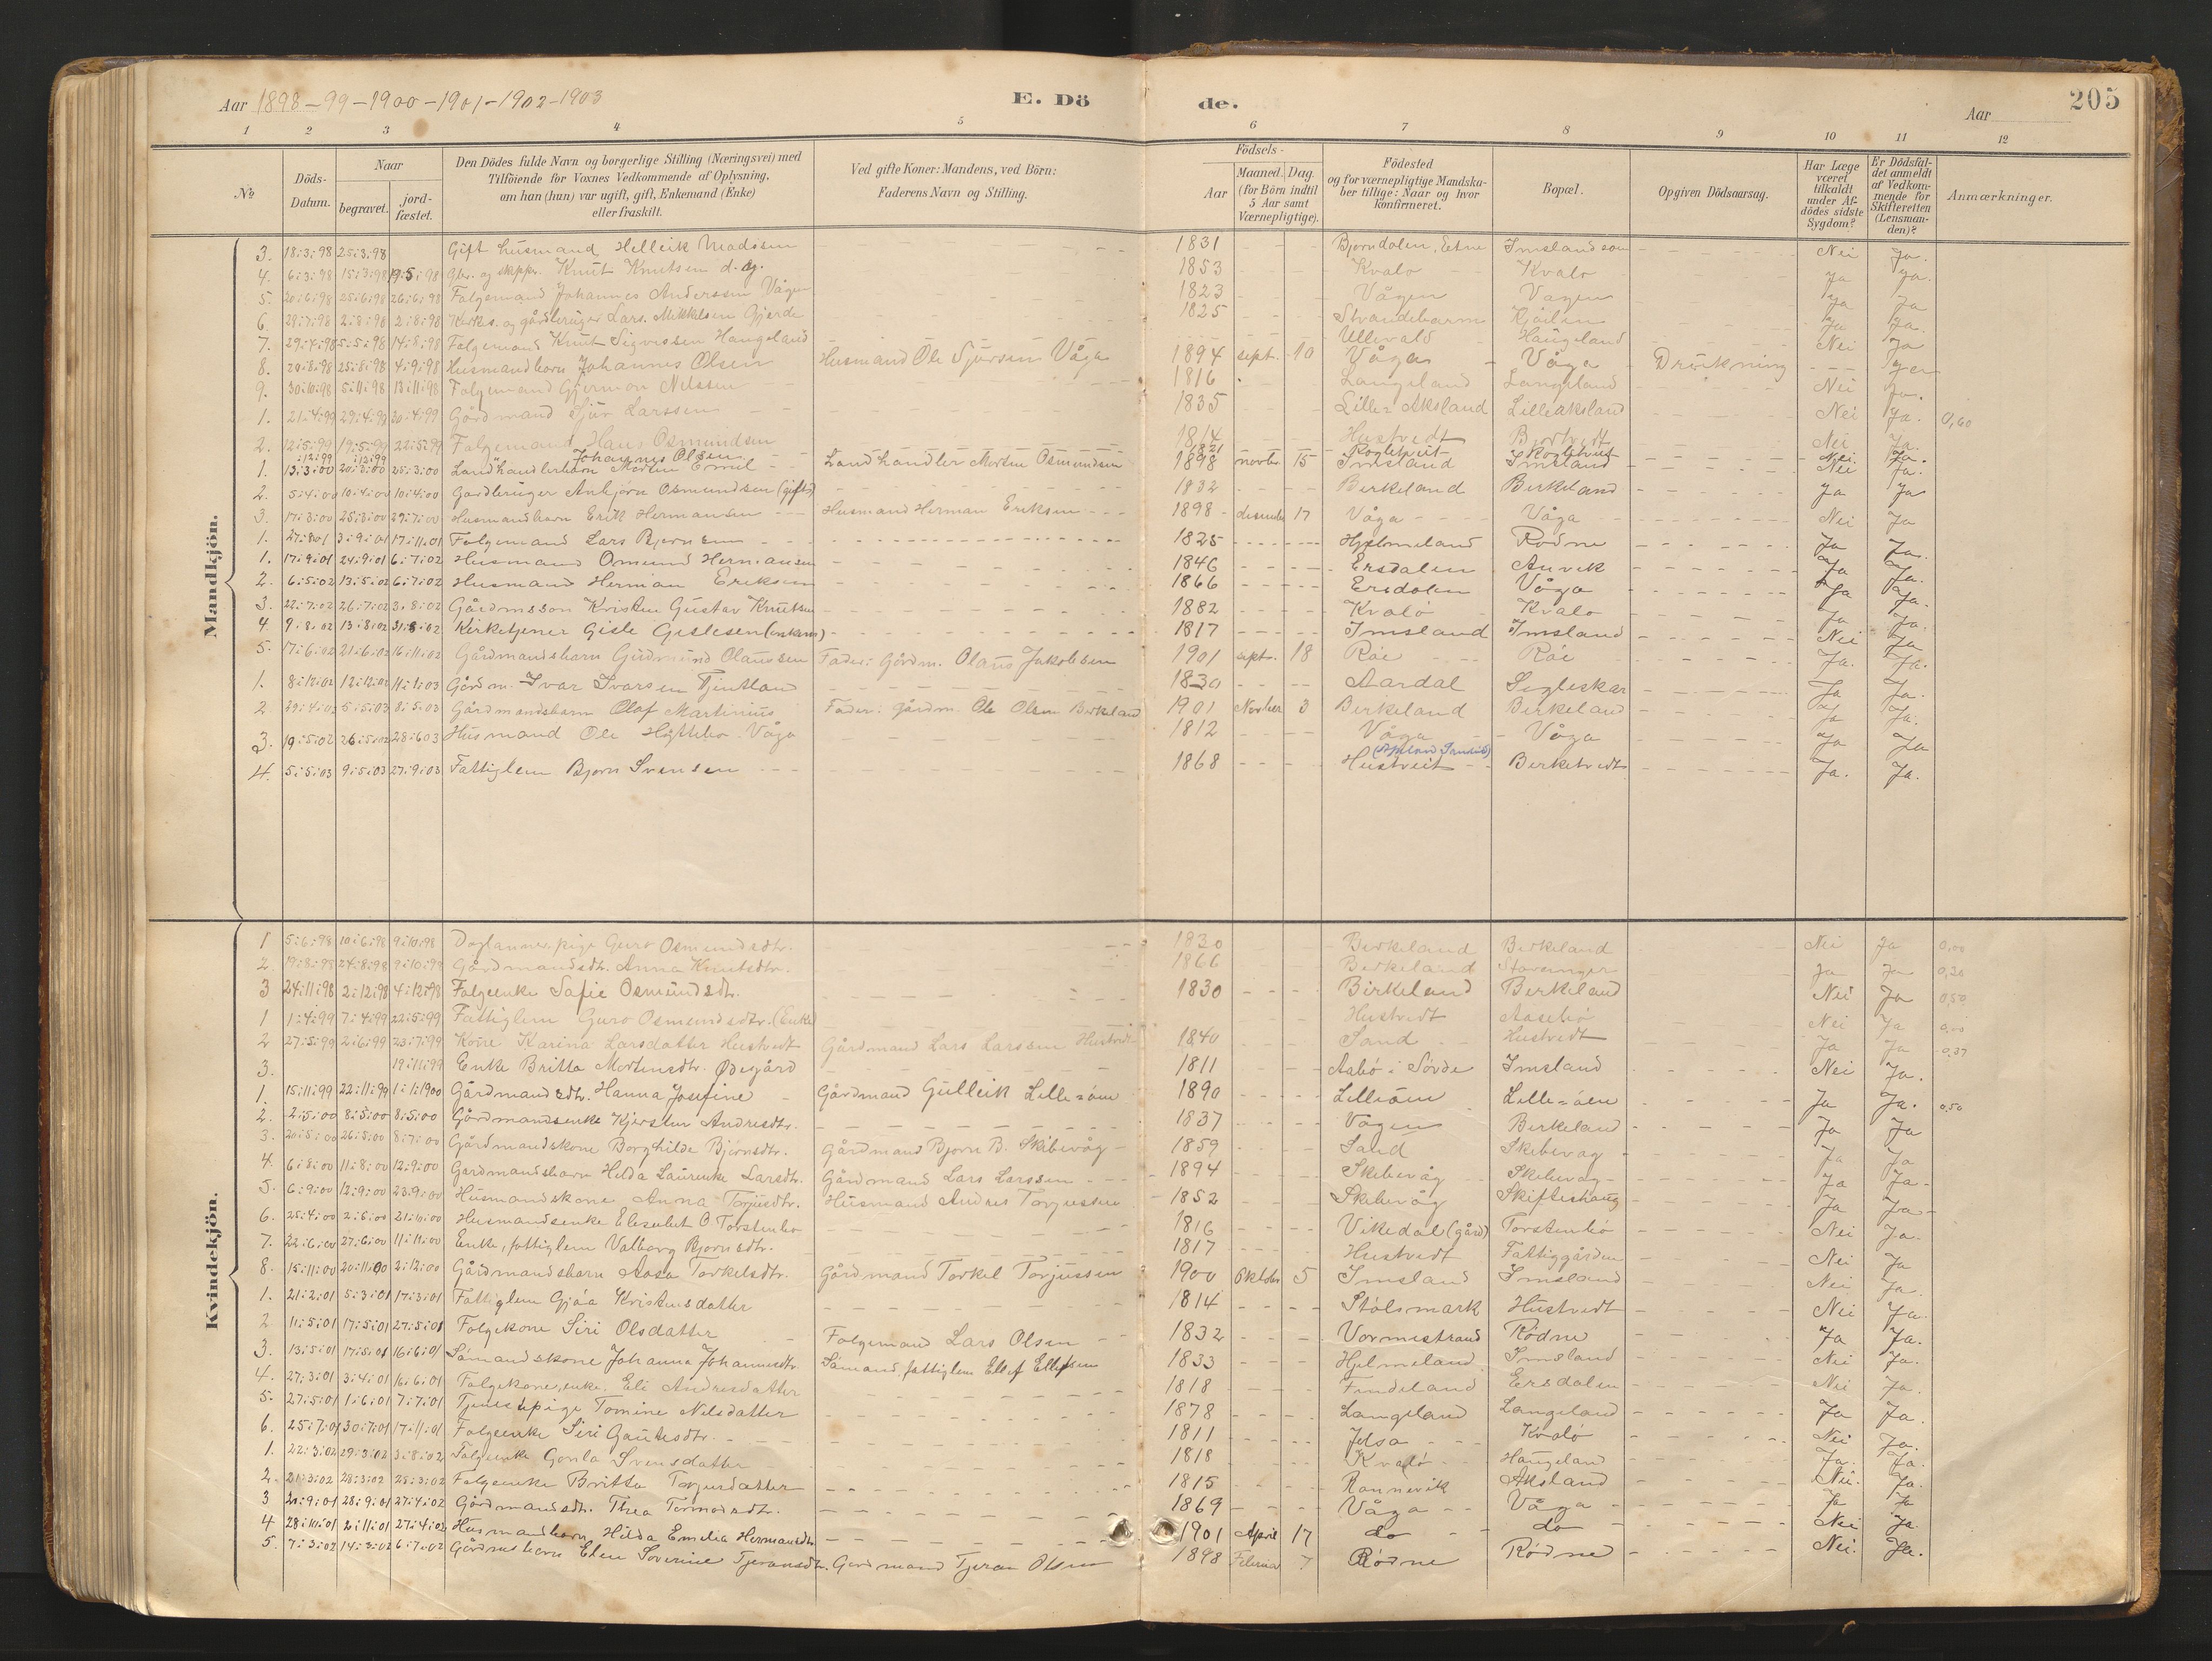 Aar 1898-99-1900-1901-1902-1903 E. Dö de. Aar 205
1 2 3 4 5 6 7 8 9 10 11 12
№ Döds-Datum. Naar begravet. jordfæstet. Den Dödes fulde Navn og borgerlige Stilling (Næringsvei) med Tilföiende for Voxnes Vedkommende af Oplysning, om han (hun) var ugift, gift, Enkemand (Enke) eller fraskilt. Ved gifte Koner: Mandens, ved Börn: Faderens Navn og Stilling. Födsels- Aar Maaned. Dag. (for Börn indtil 5 Aar samt Værnepligtige). Födested og for værnepligtige Mandskaber tillige: Naar og hvor konfirmeret. Bopæl. Opgiven Dödsaarsag. Har Læge været tilkaldt under Afdödes sidste Sygdom? Er Dödsfaldet anmeldt af Vedkommende for Skifteretten (Lensmanden)? Anmærkninger.
Mandkjön.
3. 18:3:98 25:3:98 Gift husmand Helleik Madssen 1831 Bjorndalen, Etne Imsland Nei Ja.
4. 6:3:98 15:3:98 19:5:98 Gbr. og skippr. Knut Knutsen d. y. 1853 Kvalo Kvalo Ja Ja.
5. 20:6:98 25:6:98 26:6:98 Folgemand Johannes Anderssen Vågen 1823 Vågen Vagen Ja Ja
6. 29:7:98 2:8:98 2:8:98 Kirkes. og gårdbruger Lars Mikkelsen Gjerde 1825 Strandebarm Ja Ja.
7. 29:4:98 5:5:98 14:8:98 Folgemand Knut Sigvessen Haugeland Ullevald Haugeland Nei Ja
8. 20:8:98 25:8:98 4:9:98 Husmandbarn Johannes Olsen Husmand Ole Sjursen Våga 1894 sept. 10 Våga Våga Drukning
9. 30:10:98 5:11:98 13:11:98 Folgemand Gjermon Nilssen 1816 Langeland Langeland Nei Ja.
1. 21:4:99 29:4:99 30:4:99 Gårdmand Sjur Larssen 1835 Lille Aksland Lilleaksland Nei Ja. 0,60
2. 12:5:99 19:5:99 22:5:99 Folgemand Hans Osmundsen 1814 Hustvedt Nei Ja.
:12:99 :12:99 Johannes Olsen 1821 Nei Ja.
1. 13:3:00 20:3:00 25:3:00 Landhandlerbarn Morten Emil Landhandler Morten Osmundsen 1898 novbr. 15 Imsland Imsland Nei Ja.
2. 5:4:00 10:4:00 10:4:00 Gardbruger Anbjörn Osmundsen (gift) 1832 Birkeland Birkeland Ja Ja
3. 17:3:00 25:3:00 29:7:00 Husmandsbarn Erik Hermansen Husmand Herman Eriksen 1898 desember 17 Våga Våga Nei Ja
1. 27:8:01 3:9:01 17:11:01 Folgemand Lars Bjornsen 1825 Hjelmeland Rodne Ja Ja.
1. 17:9:01 24:9:01 6:7:02 Husmand Omund Hermansen 1846 Ersdalen Anvik Ja Ja.
2. 6:5:02 13:5:02 6:7:02 Husmand Herman Eriksen 1866 Ersdalen Våga Ja Ja.
3. 22:7:02 26:7:02 3:8:02 Gårdmsson Kristen Gustav Knutsen 1882 Kvalö Kvalo Ja Ja.
4. 9:8:02 13:8:02 31:8:02 Kirketjener Gisle Gislesen (enkem) 1817 Imsland Imsland Nei Ja
5. 17:6:02 21:6:02 16:11:02 Gårdmandsbarn Gudmund Olaussen Fader: Gårdm. Olaus Jakobsen 1901 sept. 18 Röe Röe Ja. Ja.
1. 8:12:02 12:12:02 11:1:03 Gårdm. Ivar Ivarsen Tjentland 1830 Aardal Segleskar Ja Ja.
2. 29:4:03 5:5:03 8:5:03 Gårdmandsbarn Olaf Martinius Fader: gårdm. Ole Olsen Birkeland 1901 Novber 3 Birkeland Birkeland Ja Ja.
3. 19:5:02 26:5:02 28:6:03 Husmand Ole Hyttebo. Våga 1812 Våga Våga Ja Ja
4. 5:5:03 9:5:03 27:9:03 Fattiglem Bjorn Svensen 1868 Hustveit Birketvedt Ja. Ja.
Kvindekjön.
1 5:6:98 10:6:98 9:10:98 Daglönner.pige Guro Osmundsdtr. 1830 Birkeland Birkeland Nei Ja 0,00
2. 19:8:98 24:8:98 9:10:98 Gårdmandsdtr. Anna Knutsdtr. 1866 Birkeland Stavanger Ja Ja 0,30
3 24:11:98 2:12:98 4:12:98 Folgeenke Safie Osmundsdtr. 1830 Birkeland Birkeland Nei Ja 0,50
1 1:4:99 7:4:99 22:5:99 Fattiglem Guro Osmundsdtr. (Enke) Hustvedt Aasebö Nei Ja 0,00
2 27:5:99 2:6:99 23:7:99 Kone Karina Larsdatter Hustvedt Gårdmand Lars Larssen Hustvedt 1840 Sand Hustvedt Ja Ja 0,37
3. 19:11:99 Enke Britta Mortensdtr. Ødegård 1811 Aabö i Sövde Imsland Nei Ja.
1. 15:11:99 22:11:99 1:1:1900 Gårdmandsdtr. Hanna Josefine Gårdmand Gulleik Lille-öen 1890 Lilleöen Lille-öen Ja Ja. 0,50
2. 2:5:00 8:5:00 8:5:00 Gårdmandsenke Kjersten Andresdtr. 1837 Vågen Birkeland Ja Ja
3. 20:5:00 26:5:00 8:7:00 Gårdmandskone Borghilde Bjornsdtr. Gårdmand Bjorn B. Skibevåg 1859 Sand Skibevag Ja Ja
4. 6:8:00 11:8:00 12:9:00 Gardmandsbarn Hilda Laurenke Larsdtr. Gårdmand Lars Larssen 1894 Skibevåg Skibevag Ja Ja
5. 6:9:00 12:9:00 23:9:00 Husmandskone Anna Torjusdtr. Husmand Andres Torjussen 1852 Skibevåg Skifteshaug Ja Ja
6. 25:4:00 2:6:00 21:10:00 Husmandsenke Elisabet O. Torstenbo 1816 Vikedal (gård) Torstenbö Nei Ja.
7. 22:6:00 27:6:00 11:11:00 Enke, fattiglem Valborg Bjornsdtr. 1817 Hustvedt Fattiggården Nei Ja
8. 15:11:00 20:11:00 2:12:00 Gårdmandsbarn Aasa Torkelsdtr. Gårdmand Torkel Torjussen 1900 Oktober 5 Imsland Imsland Nei Ja.
1. 21:2:01 5:3:01 17:3:01 Fattiglem Gjöa Kristensdatter 1814 Stölsmark Hustvedt Nei Ja.
2 11:5:01 17:5:01 27:5:01 Folgekone Siri Olsdatter Folgemand Lars Olsen 1832 Vormestrand Rödne Ja Ja.
3. 13:5:01 17:5:01 16:6:01 Sömandskone Johanna Johannesdtr. Sömand, fattiglem Ellef Ellefsen 1833 Hjelmeland Imsland Nei Ja.
4. 27:3:01 3:4:01 16:6:01 Folgekone, enke. Eli Andresdatter 1818 Findeland Ersdalen Nei Ja.
5. 27:5:01 1:6:01 7:7:01 Tjenestpige Tomine Nilsdatter 1878 Langeland Langeland Ja Ja.
6. 25:7:01 30:7:01 17:11:01 Folgeenke Siri Gautesdtr. 1811 Jelsa Kvalö Nei Ja.
1. 22:3:02 29:3:02 3:8:02 Folgeenke Gonla Svensdatter 1818 Kvalö Haugeland Ja. Ja.
2. 21:3:02 28:3:02 28:3:02 Folgeenke Britta Torjusdatter 1815 Ronnevik Aksland Nei. Ja.
3 20:9:01 28:9:01 27:4:02 Gårdmandsdtr. Thea Tormodsdtr. 1869 Våga Våga Ja Ja
4 28:10:01 2:11:01 27:4:02 Husmandbarn Hilda Emelia Hermansdtr. 1901 April 17 do do Nei Ja.
5. 7:3:02 14:3:02 6:7:02 Gårdmsbarn Elen Soverine Tjeransdtr. Gardmand Tjeran Olsen 1898 Februar 7 Rödne Rödne Nei. Ja.